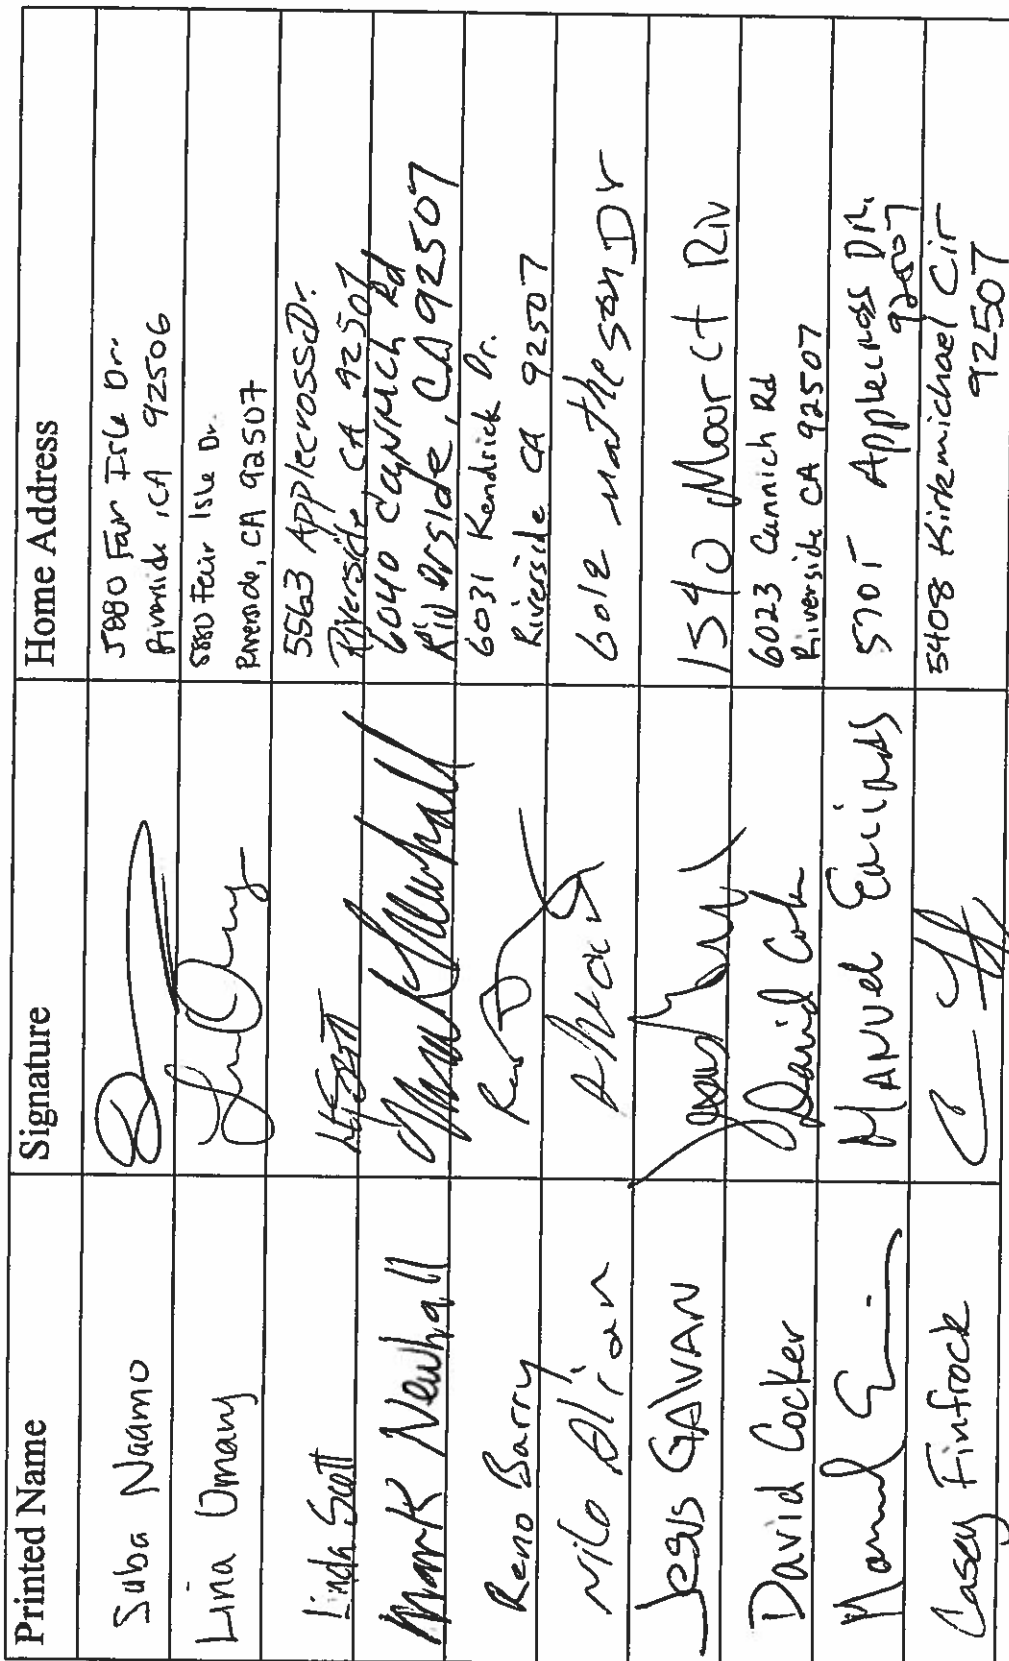 Printed Name Signature Home Address
Suba Naamo 5880 Fair Isle Dr.
Riverside, CA 92506
Lina Omany 5880 Fair Isle Dr.
Riverside, CA 92507
Linda Scott 5563 Applecross Dr.
Riverside CA 92507
Mark Newhall Mark Newhall 6040 Cannich Rd
Riverside, CA 92507
Reno Barry 6031 Kendrick Dr.
Riverside CA 92507
Nilo 6012 Matheson Dr
Jesus GAlVAN 1590 Moor Ct Riv
David Cocker David 6023 Cannich Rd
Riverside CA 92507
Manuel MANUel 5701 Applecross Dr.
92507
Casey Finfrock 5408 Kirkmichael Cir
92507